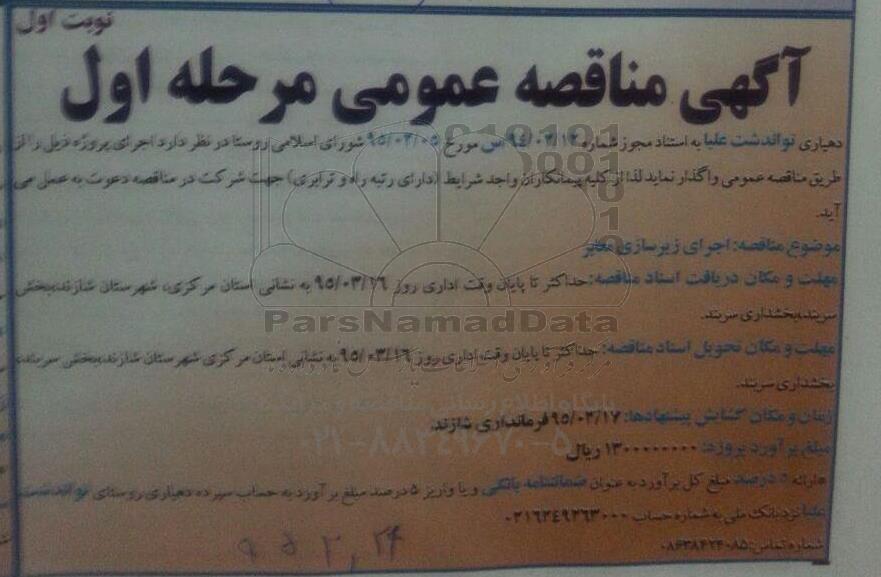 نوبت اول
آگهی مناقصه عمومی مرحله اول
دهیاری تواندشت علیا به استناد مجوز شماره ۹۴/۰۲/۱۲ س مورخ ۹۵/۰۲/۰۵ شورای اسلامی روستا در نظر دارد اجرای پروژه ذیل را از
طریق مناقصه عمومی واگذار نماید لذا از کلیه پیمانکاران واجد شرایط (دارای رتبه راه و ترابری) جهت شرکت در مناقصه دعوت به عمل می
آید.
موضوع مناقصه: اجرای زیرسازی معابر
مهلت و مکان دریافت اسناد مناقصه: حداکثر تا پایان وقت اداری روز ۹۵/۰۳/۱۶ به نشانی استان مرکزی، شهرستان شازند، بخش
سربند، بخشداری سربند.
ParsNamadData
مهلت و مکان تحویل اسناد مناقصه: حداکثر تا پایان وقت اداری روز ۹۵/۰۳/۱۶ به نشانی استان مرکزی شهرستان شازند، بخش سربند،
بخشداری سربند.
زمان و مکان گشایش پیشنهادها: ۹۵/۰۳/۱۷ فرمانداری شازند.
۰۲۱-۸۸۳۴۹۶۷۰-۵
مبلغ برآورد پروژه: ۱۳۰۰۰۰۰۰۰۰ ریال
ارائه ۵ درصد مبلغ کل برآورد به عنوان ضمانتنامه بانکی و یا واریز ۵ درصد مبلغ برآورد به حساب سپرده دهیاری روستای تواندشت
علیا نزد بانک ملی به شماره حساب ۰۲۱۶۲۴۹۲۶۳۰۰۰
شماره تماس: ۰۸۶۳۸۴۲۴۰۸۵